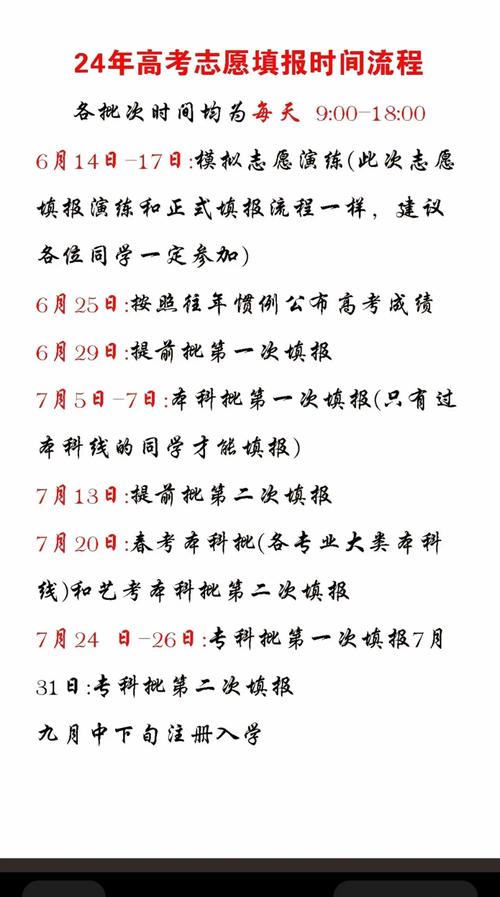 24年高考志愿填报时间流程
各批次时间均为每天 9:00-18:00
6月14日-17日:模拟志愿演练(此次志愿
填报演练和正式填报流程一样，建议
各位同学一定参加)
6月25日:按照往年惯例公布高考成绩
6月29日:提前批第一次填报
7月5日-7日:本科批第一次填报(只有过
本科线的同学才能填报)
7月13日:提前批第二次填报
7月20日:春考本科批(各专业大类本科
线)和艺考本科批第二次填报
7月24 日-26日:专科批第一次填报7月
31日:专科批第二次填报
九月中下旬注册入学